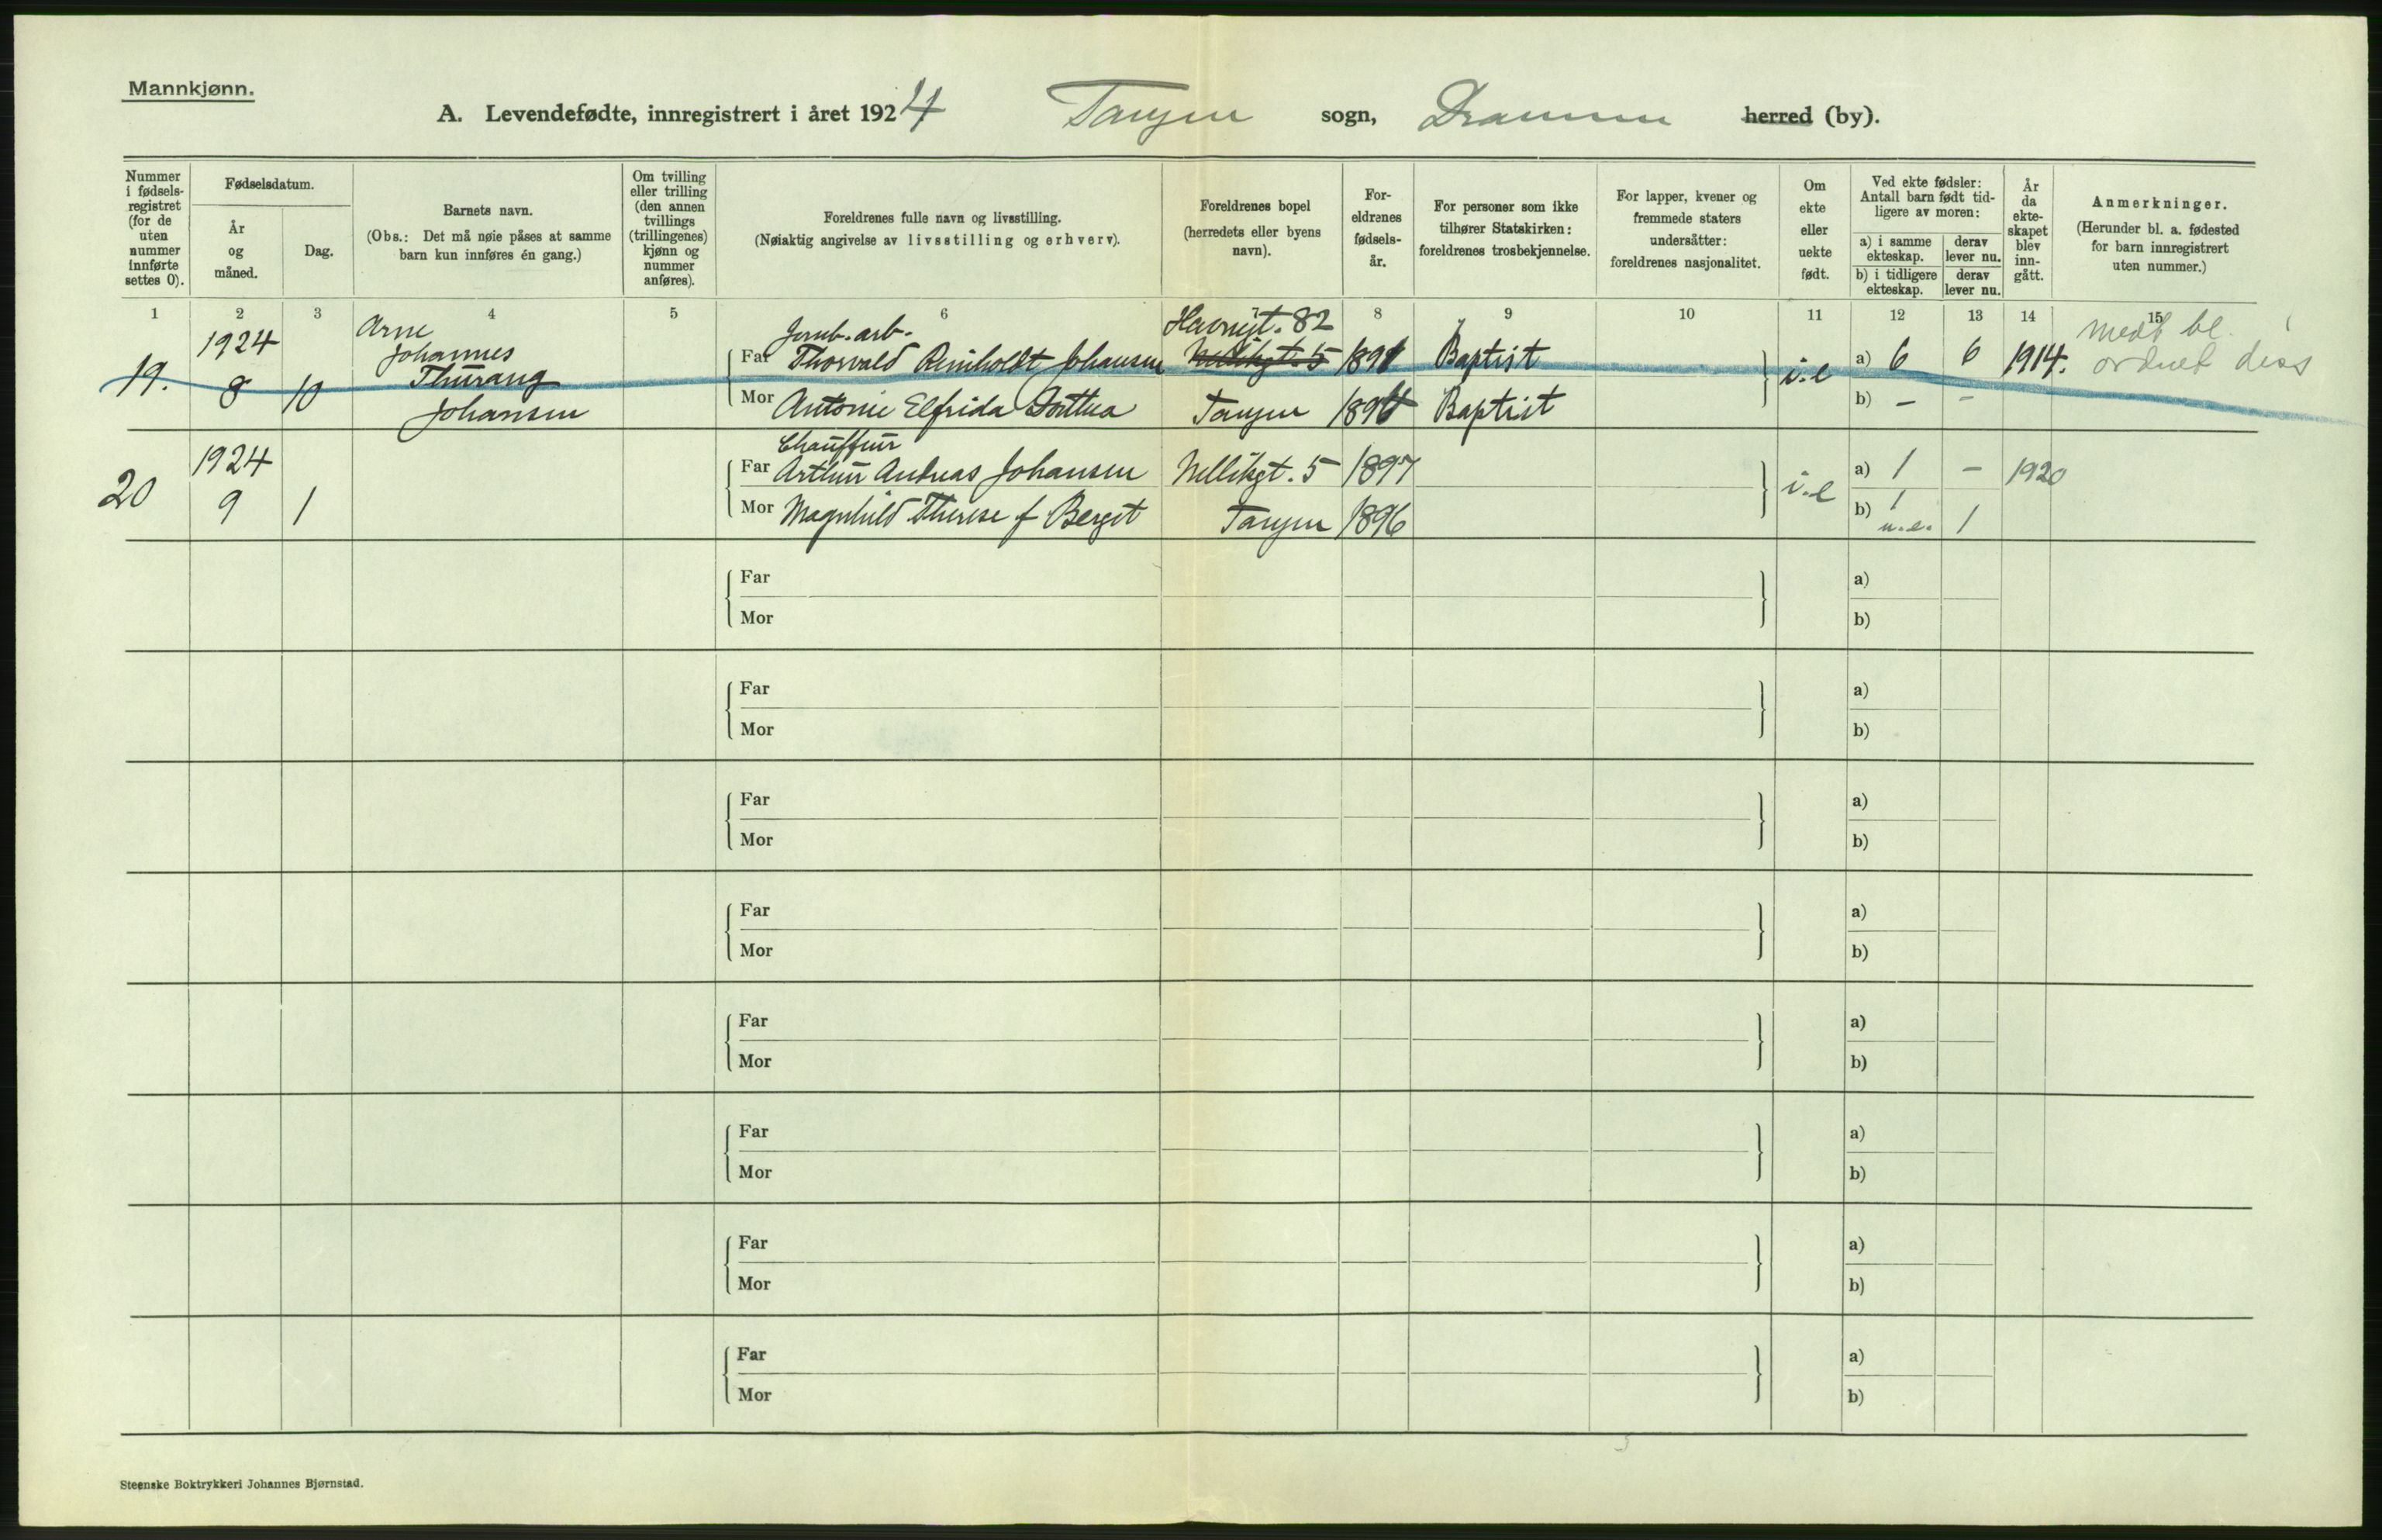 Mannkjønn.
A. Levendefødte, innregistrert i året 1924 Tangen sogn, Drammen herred (by).
Nummer i fødsels-registret (for de uten nummer innførte settes 0).
Fødselsdatum.
År og måned.
Dag.
Barnets navn.
(Obs.: Det må nøie påses at samme barn kun innføres én gang.)
Om tvilling eller trilling (den annen tvillings (trillingenes) kjønn og nummer anføres).
Foreldrenes fulle navn og livsstilling.
(Nøiaktig angivelse av livsstilling og erhverv).
Foreldrenes bopel (herredets eller byens navn).
For-eldrenes fødsels-år.
For personer som ikke tilhører Statskirken: foreldrenes trosbekjennelse.
For lapper, kvener og fremmede staters undersåtter: foreldrenes nasjonalitet.
Om ekte eller uekte født.
Ved ekte fødsler: Antall barn født tid-ligere av moren:
a) i samme ekteskap.
derav lever nu.
b) i tidligere ekteskap.
derav lever nu.
År da ekte-skapet blev inn-gått.
Anmerkninger.
(Herunder bl. a. fødested for barn innregistrert uten nummer.)
1 2 3 4 5 6 7 8 9 10 11 12 13 14 15
19. 1924 8 10
Arne
Johannes
Thurang
Johansen
Jernb. arb.
Far Thorvald Reinholdt Johansen
Havnegt. 82
Nellikgt. 5
Baptist
Mor Antonie Elfrida
Tangen
Baptist
i.e
a) 6 6 1914.
b) - -
ordnet
20 1924 9 1
Chauffeur
Far Arthur Andreas Johansen Nellikgt. 5 1897
Mor Magnhild Therese f Berget Tangen 1896
i.e
a) 1 - 1920
b) 1 u.e. 1
Far a)
Mor b)
Far a)
Mor b)
Far a)
Mor b)
Far a)
Mor b)
Far a)
Mor b)
Far a)
Mor b)
Far a)
Mor b)
Far a)
Mor b)
Steenske Boktrykkeri Johannes Bjørnstad.